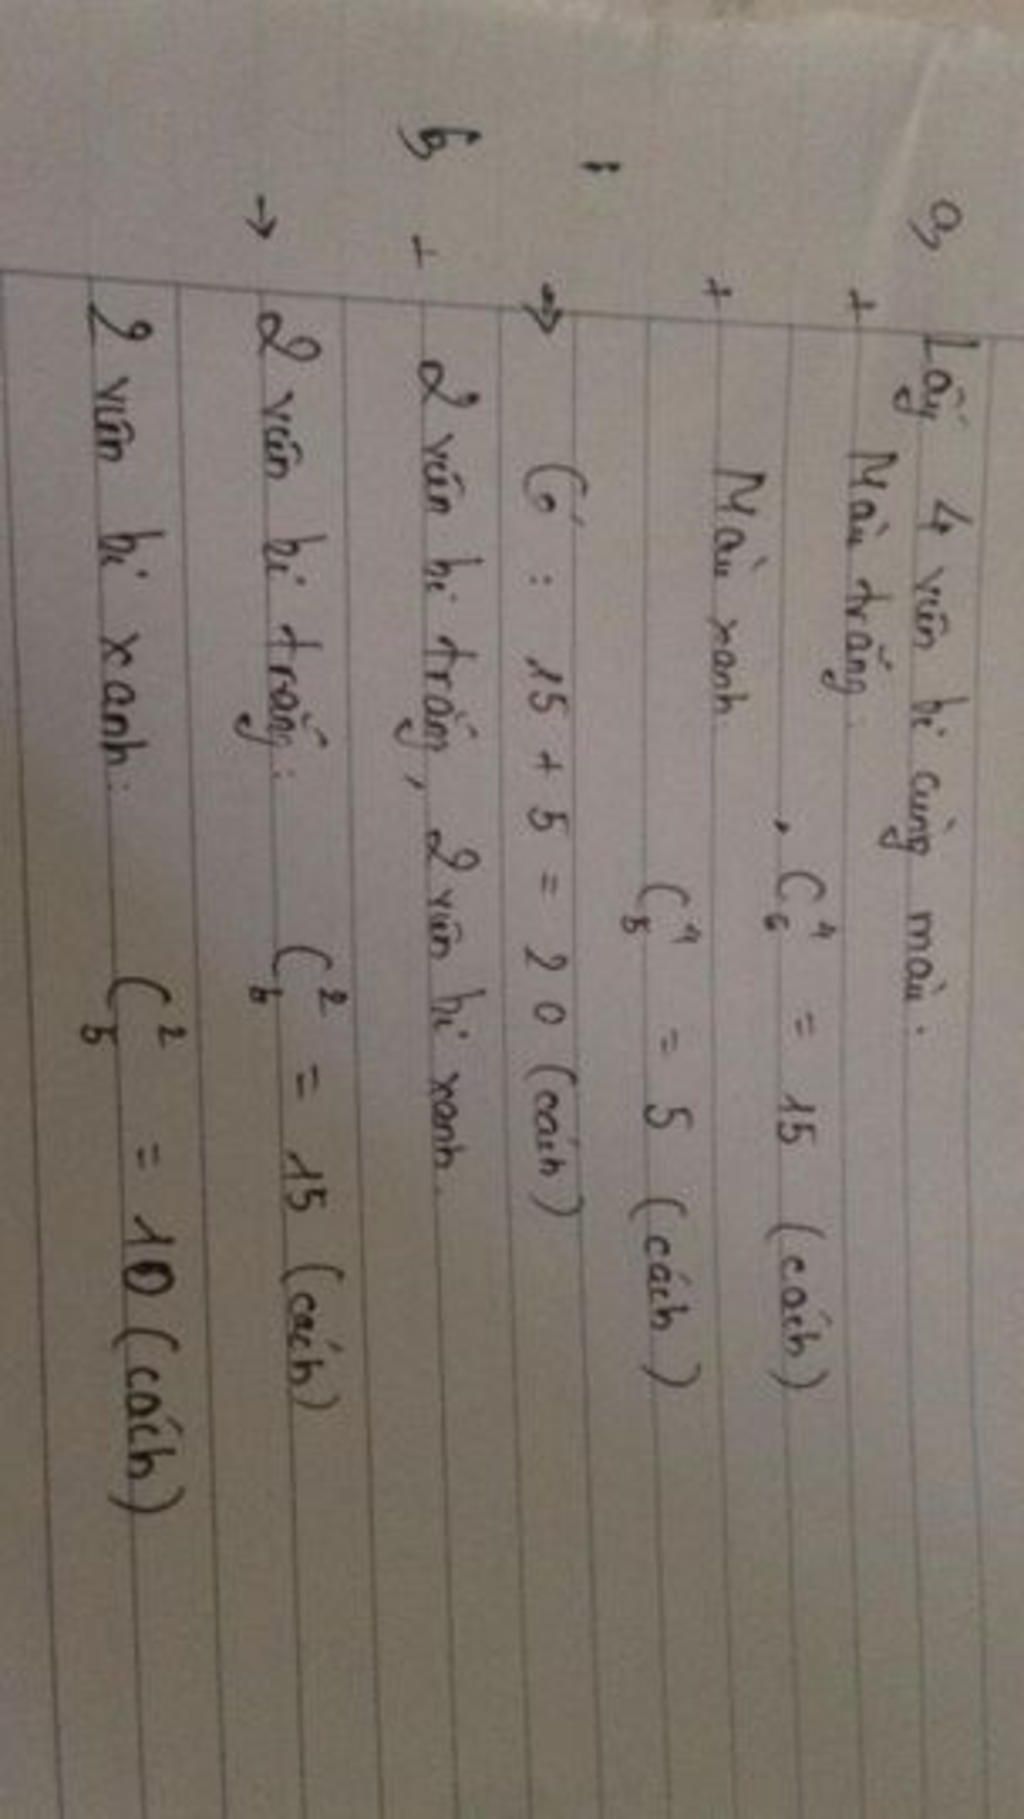 a, Lấy 4 viên bi cùng màu:
+ Màu trắng.
C₆⁴ = 15 (cách)
+ Màu xanh
C₅⁴ = 5 (cách)
⇒ Có : 15 + 5 = 20 (cách)
b, + 2 viên bi trắng, 2 viên bi xanh.
→ 2 viên bi trắng: C₆² = 15 (cách)
2 viên bi xanh: C₅² = 10 (cách)